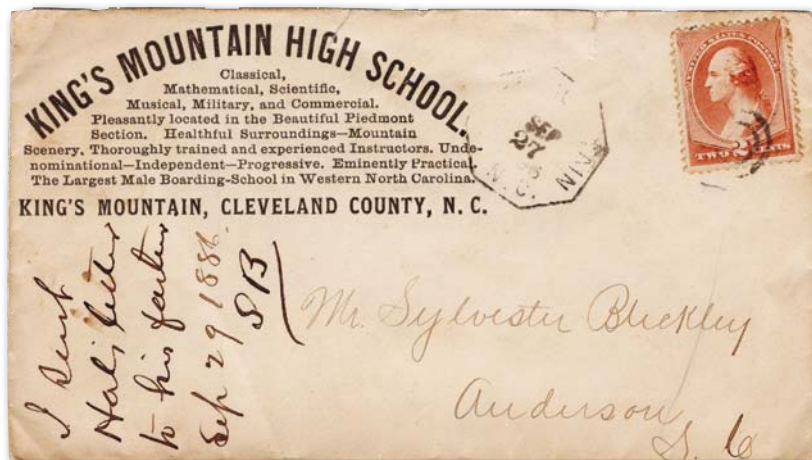 KING'S MOUNTAIN HIGH SCHOOL.
Classical,
Mathematical, Scientific,
Musical, Military, and Commercial.
Pleasantly located in the Beautiful Piedmont
Section. Healthful Surroundings—Mountain
Scenery. Thoroughly trained and experienced Instructors. Unde-
nominational—Independent—Progressive. Eminently Practical.
The Largest Male Boarding-School in Western North Carolina.
KING'S MOUNTAIN, CLEVELAND COUNTY, N. C.
SEP
27
N.C.
UNITED STATES POSTAGE
TWO CENTS
I sent
letter
to his
Sep 29 1886
SB
Mr. Sylvester Bleckley
Anderson
S. C